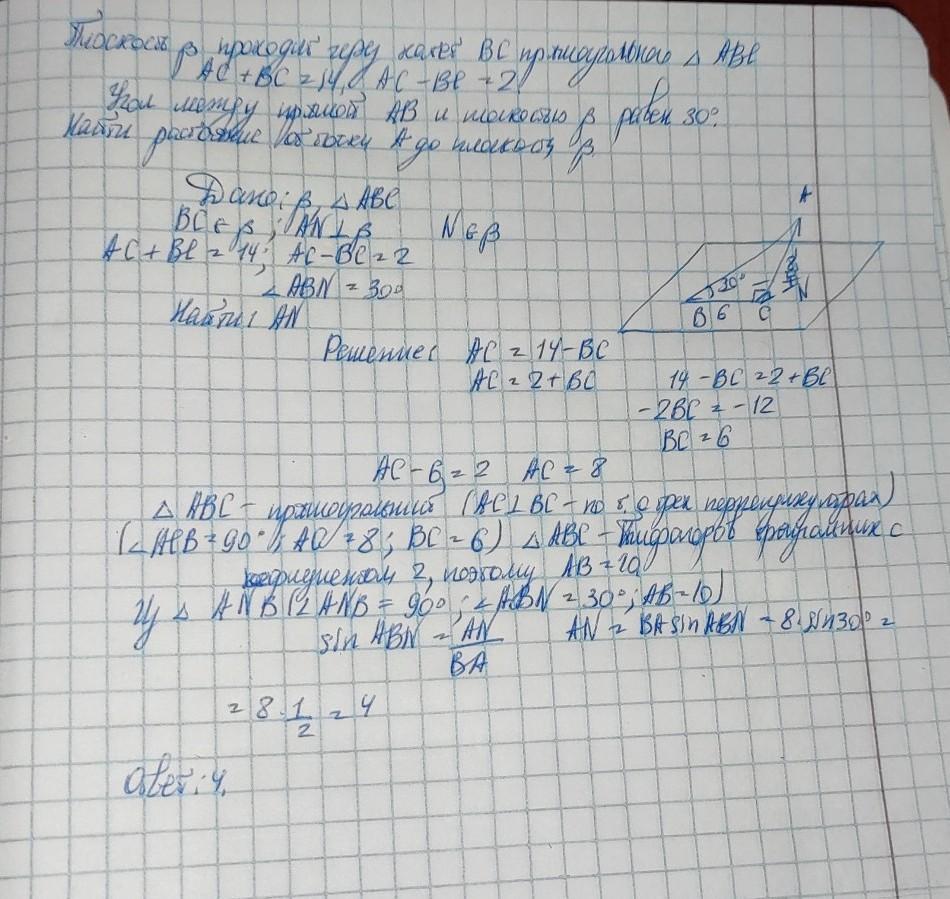 Плоскость β проходит через катет BC прямоугольного △ ABC
AC + BC = 14, AC - BC = 2
Угол между прямой AB и плоскостью β равен 30°.
Найти расстояние от точки A до плоскости β.
Дано: β, △ ABC
BC ∈ β; AN ⊥ β N ∈ β
AC + BC = 14; AC - BC = 2
∠ ABN = 30°
Найти: AN
A
30°
B 6 C N
Решение: AC = 14 - BC
AC = 2 + BC 14 - BC = 2 + BC
-2BC = -12
BC = 6
AC - 6 = 2 AC = 8
△ ABC - прямоугольный (AC ⊥ BC - по т. о трех перпендикулярах)
(∠ACB = 90°; AC = 8; BC = 6) △ ABC - Пифагоров треугольник с
коэфициентом 2, поэтому AB = 10
Из △ ANB (∠ ANB = 90°; ∠ABN = 30°; AB = 10)
sin ABN = AN/BA AN = BA sin ABN = 8 · sin 30° =
= 8 · 1/2 = 4
Ответ: 4.